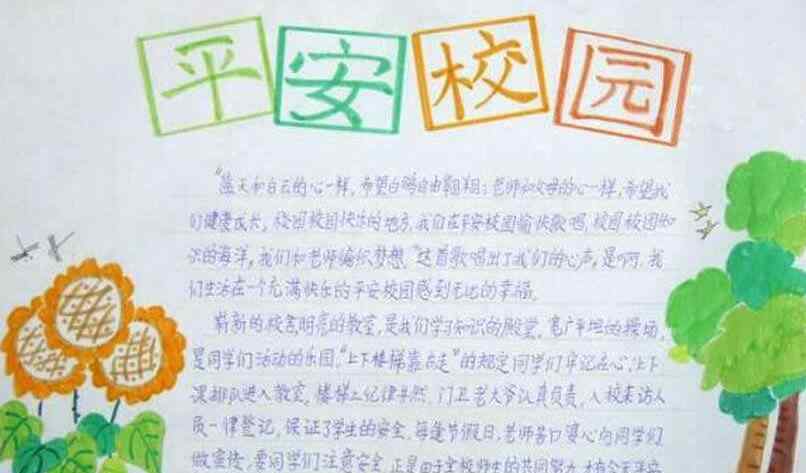 平安校园
“蓝天和白云的心一样，希望白鸽自由翱翔；老师和父母的心一样，希望我
们健康成长，校园校园快乐的地方，我们在平安校园愉快歌唱，校园校园知
识的海洋，我们和老师编织梦想。”这首歌唱出了我们的心声，是啊，我
们生活在一个充满快乐的平安校园感到无比的幸福。
崭新的校舍明亮的教室，是我们学习知识的殿堂，宽广平坦的操场，
是同学们活动的乐园，“上下楼梯靠右走”的规定同学们牢记在心，上下
课排队进入教室，楼梯上纪律井然，门卫老大爷认真负责，入校来访人
员一律登记，保证了学生的安全，每逢节假日，老师苦口婆心向同学们
做宣传，要同学们注意安全，正是由于全校师生的共同努力，才有今天平安